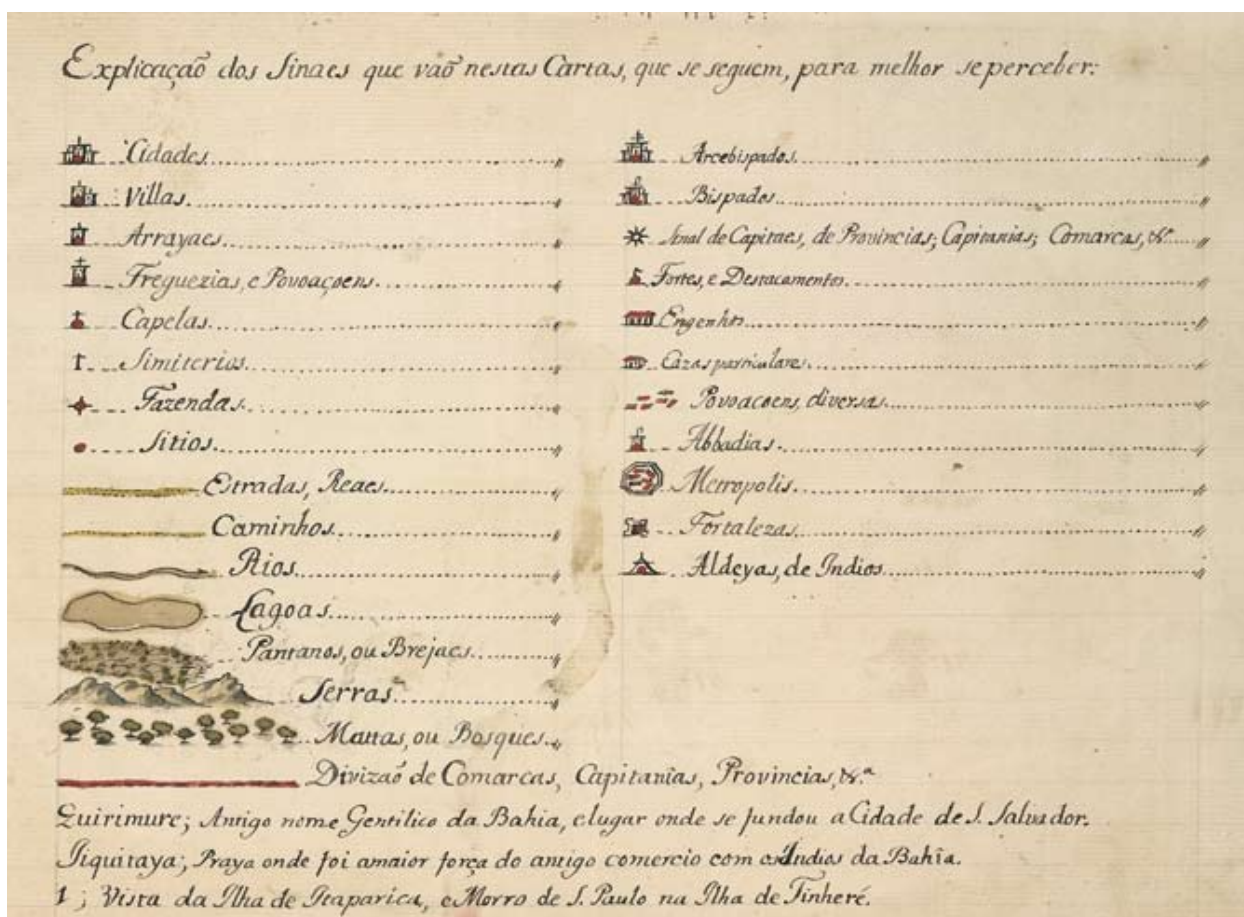 Explicação dos Sinaes que vão nestas Cartas, que se seguem, para melhor se perceber:
Cidades
Villas
Arrayaes
Freguezias, e Povoaçoens
Capelas
Simiterios
Fazendas
Sitios
Estradas, Reaes
Caminhos
Rios
Lagoas
Pantanos, ou Brejaes
Serras
Mattas, ou Bosques
Arcebispados
Bispados
Sinal de Capitaes, de Provincias; Capitanias; Comarcas, &ª
Fortes, e Destacamentos
Engenhos
Cazas particulares
Povoacoens, diversas
Abbadias
Metropolis
Fortalezas
Aldeyas, de Indios
Divizaõ de Comarcas, Capitanîas, Provincias, &ª
Quirimure; Antigo nome Gentilico da Bahia, e lugar onde se fundou a Cidade de S. Salvador.
Praya onde foi a maior força do antigo comercio com os Indios da Bahîa.
1; Vista da Ilha de Itaparica, e Morro de S. Paulo na Ilha de Tinheré.